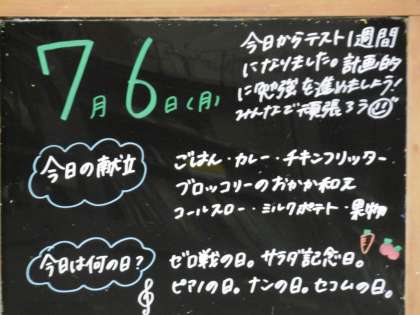 7月6日(月)
今日からテスト1週間
になりました。計画的
に勉強を進めましょう!
みんなで頑張ろう
今日の献立
ごはん・カレー・チキンフリッター
ブロッコリーのおかか和え
コールスロー・ミルクポテト・果物
今日は何の日?
ゼロ戦の日。サラダ記念日。
ピアノの日。ナンの日。セコムの日。